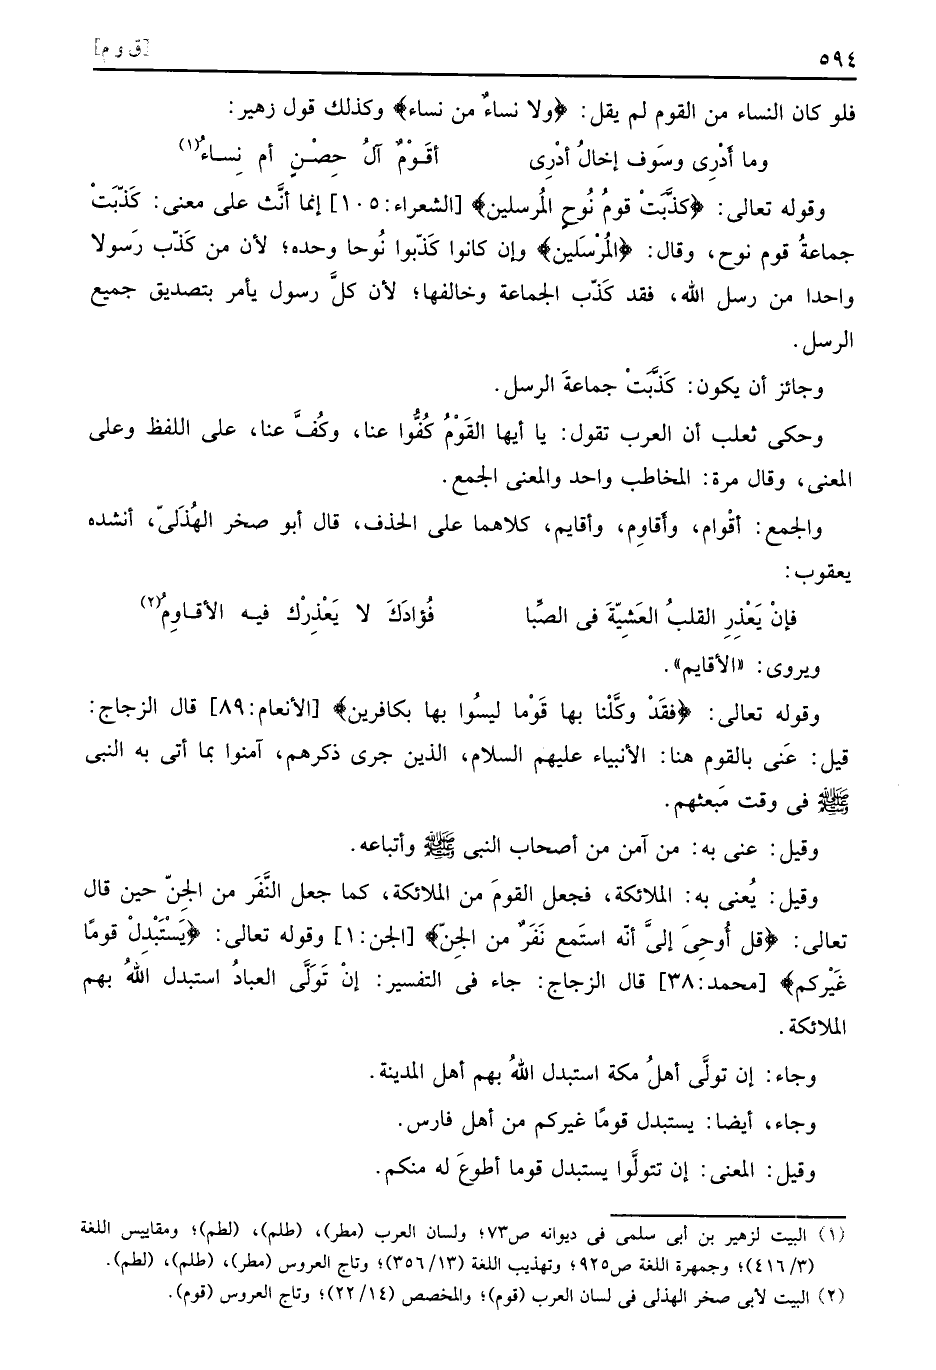 ٥٩٤
[ق و م]
فلو كان النساء من القوم لم يقل: ﴿ولا نساءٌ من نساء﴾ وكذلك قول زهير:
وما أَدْرِى وسَوف إخالُ أدْرِى أقَـوْمٌ آلُ حِصْـنٍ أم نِسـاءُ(١)
وقوله تعالى: ﴿كذَّبَتْ قومُ نُوحٍ المُرسلين﴾ [الشعراء:١٠٥] إنما أنَّث على معنى: كَذّبَتْ
جماعةُ قوم نوح، وقال: ﴿المُرْسَلين﴾ وإن كانوا كذّبوا نُوحا وحده؛ لأن من كَذّب رَسولا
واحدا من رسل الله، فقد كَذّب الجماعة وخالفها؛ لأن كلَّ رسول يأمر بتصديق جميع
الرسل.
وجائز أن يكون: كَذَّبَتْ جماعةَ الرسل.
وحكى ثعلب أن العرب تقول: يا أيها القَوْمُ كُفُّوا عنا، وكُفَّ عنا، على اللفظ وعلى
المعنى، وقال مرة: المخاطب واحد والمعنى الجمع.
والجمع: أقْوام، وأَقاوِم، وأقايم، كلاهما على الحذف، قال أبو صخر الهُذَلىّ، أنشده
يعقوب:
فإنْ يَعْذِرِ القلبُ العَشِيّةَ فى الصِّبا فُؤادَكَ لا يَعْذِرْك فيـه الأقـاوِمُ(٢)
ويروى: «الأقايم».
وقوله تعالى: ﴿فقَدْ وكَّلْنا بها قَوْما ليسُوا بها بكافرين﴾ [الأنعام:٨٩] قال الزجاج:
قيل: عَنى بالقوم هنا: الأنبياء عليهم السلام، الذين جرى ذكرهم، آمنوا بما أتى به النبى
ﷺ فى وقت مَبعثهم.
وقيل: عنى به: من آمن من أصحاب النبى ﷺ وأتباعه.
وقيل: يُعنى به: الملائكة، فجعل القومَ من الملائكة، كما جعل النَّفَر من الجِنّ حين قال
تعالى: ﴿قل أُوحِىَ إلىَّ أنّه استَمع نَفَرٌ من الجِنّ﴾ [الجن:١] وقوله تعالى: ﴿يَسْتَبْدِلْ قومًا
غَيْركم﴾ [محمد:٣٨] قال الزجاج: جاء فى التفسير: إنْ تَوَلَّى العبادُ استبدل اللهُ بهم
الملائكة.
وجاء: إن تولَّى أهلُ مكة استبدل اللهُ بهم أهل المدينة.
وجاء، أيضا: يستبدل قومًا غيركم من أهل فارس.
وقيل: المعنى: إن تتولَّوا يستبدل قوما أطوعَ له منكم.
(١) البيت لزهير بن أبى سلمى فى ديوانه ص٧٣؛ ولسان العرب (مطر)، (طلم)، (لطم)؛ ومقاييس اللغة
(٤١٦/٣)؛ وجمهرة اللغة ص٩٢٥؛ وتهذيب اللغة (٣٥٦/١٣)؛ وتاج العروس (مطر)، (طلم)، (لطم).
(٢) البيت لأبى صخر الهذلى فى لسان العرب (قوم)؛ والمخصص (٢٢/١٤)؛ وتاج العروس (قوم).